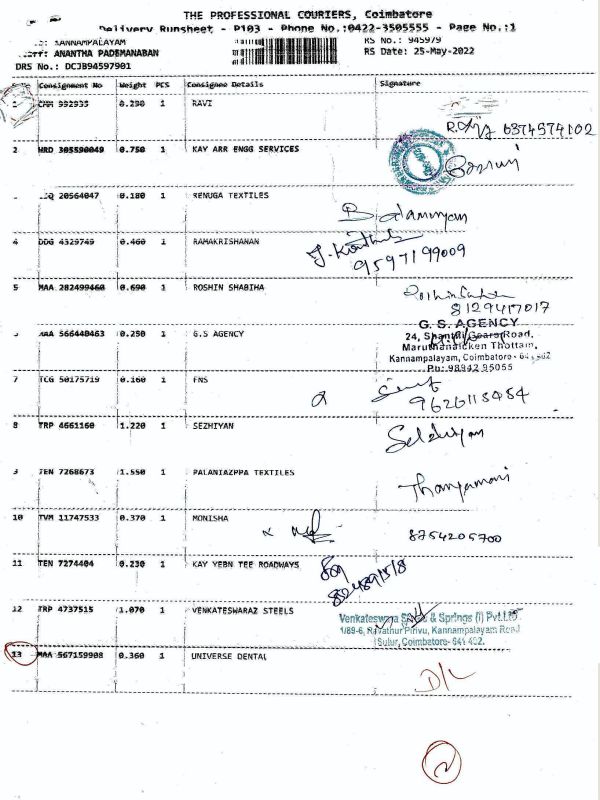 THE PROFESSIONAL COURIERS, Coimbatore
Delivery Runsheet - P103 - Phone No.:0422-3505555 - Page No.:1
KANNAMPALAYAM RS No.: 945979
ANANTHA PADEMANABAN RS Date: 25-May-2022
DRS No.: DCJB94597901
Consignment No Weight PCS Consignee Details Signature
1 CHM 992933 0.290 1 RAVI
6374574102
2 HRD 305590049 0.750 1 KAY ARR ENGG SERVICES
3 20564047 0.180 1 RENUGA TEXTILES
4 DDG 4329749 0.460 1 RAMAKRISHANAN
9597199009
5 MAA 282499460 0.690 1 ROSHIN SHABIHA
8129417017
G. S. AGENCY
MAA 566440463 0.250 1 G.S AGENCY
24, Shanthi Gears Road,
Maruthanaicken Thottam,
Kannampalayam, Coimbatore - 641 402
Ph: 98942 95055
7 TCG 50175719 0.160 1 FNS
9626115454
8 TRP 4661160 1.220 1 SEZHIYAN
9 TEN 7268673 1.550 1 PALANIAZPPA TEXTILES
Thangamani
10 TVM 11747533 0.370 1 MONISHA
8754205700
11 TEN 7274404 0.230 1 KAY YEBN TEE ROADWAYS
12 TRP 4737515 1.070 1 VENKATESWARAZ STEELS
Venkateswara & Springs (I) Pvt.Ltd.
1/89-6, Ravathur Pirivu, Kannampalayam Road
Sulur, Coimbatore- 641 402.
13 MAA 567159908 0.360 1 UNIVERSE DENTAL
D/L
2